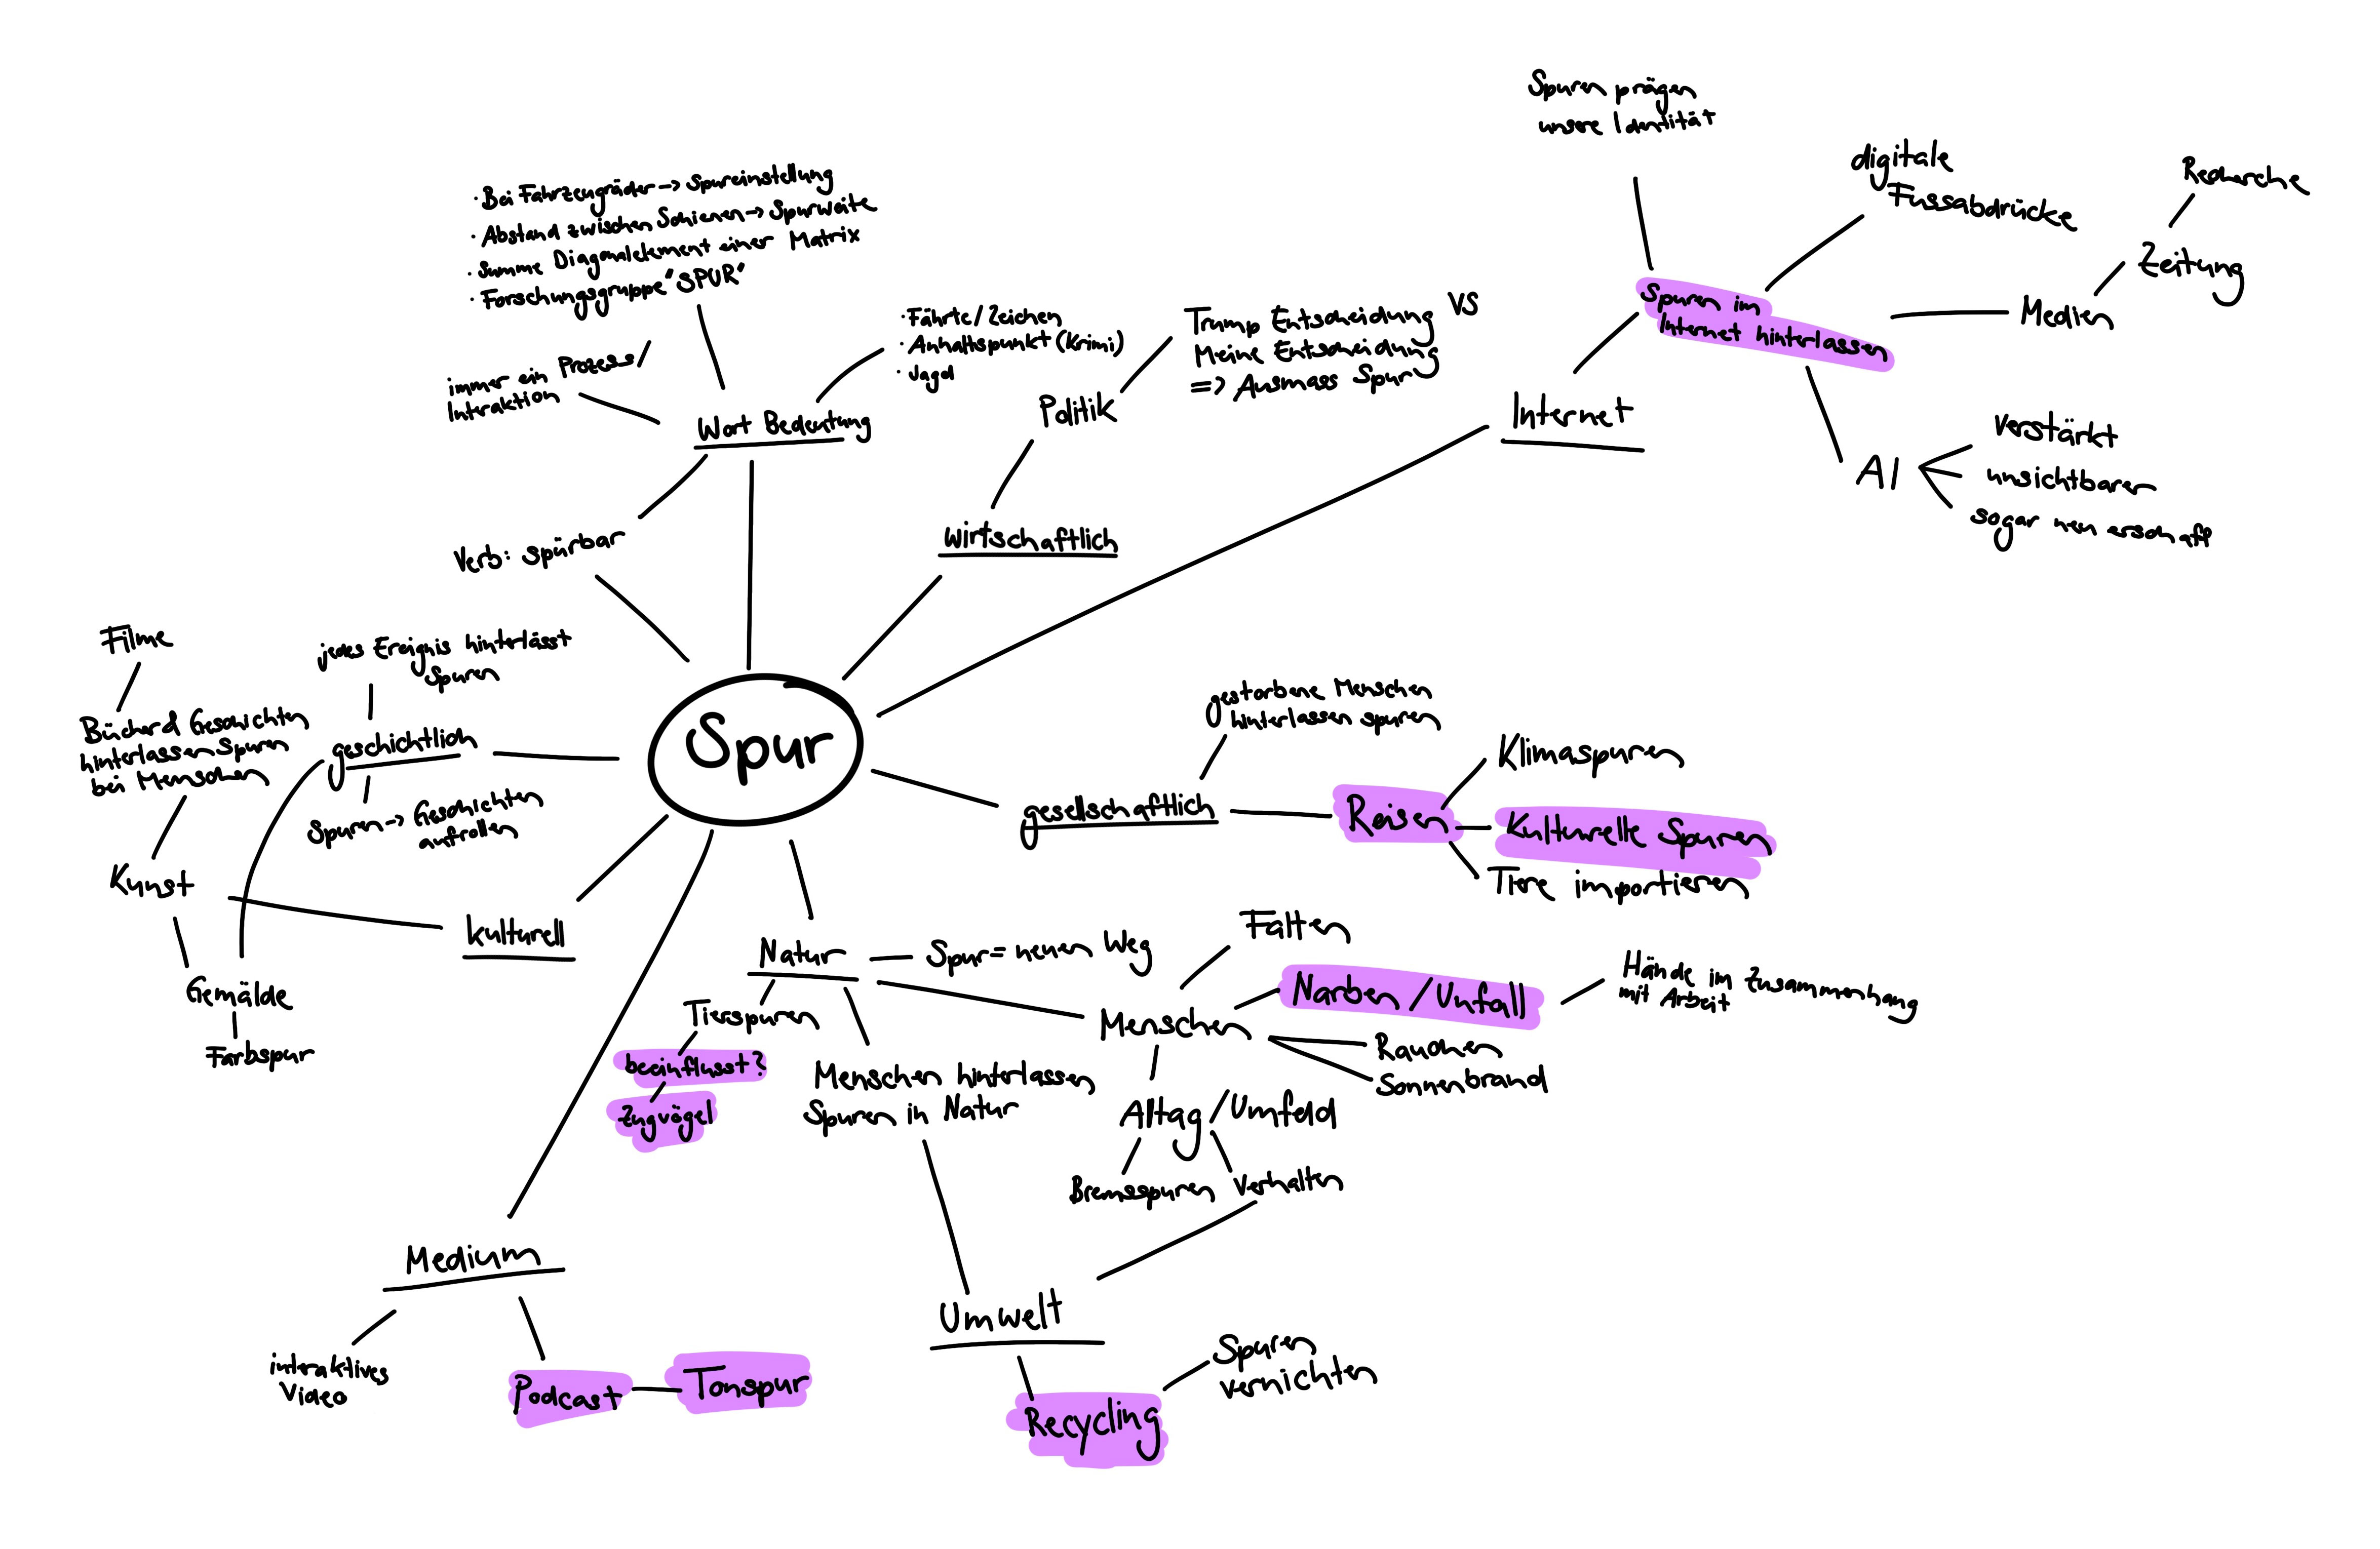 Spuren prägen
unsere Identität
digitale
Fussabdrücke
Recherche
Zeitung
Medien
Spuren im
Internet hinterlassen
Internet
AI
verstärkt
unsichtbarer
sogar neu erschaff
· Bei Fahrzeugräder -> Spureinstellung
· Abstand zwischen Schienen -> Spurweite
· Summe Diagonalelement einer Matrix
· Forschungsgruppe "SPUR"
immer ein Prozess /
Interaktion
· Fährte / Zeichen
· Anhaltspunkt (Krimi)
· Jagd
Wort Bedeutung
Verb: spürbar
Trump Entscheidung VS
Meine Entscheidung
=> Ausmass Spur
Politik
wirtschaftlich
Spur
Filme
Bücher & Geschichten
hinterlassen Spuren
bei Menschen
jedes Ereignis hinterlässt
Spuren
geschichtlich
Spuren -> Geschichten
aufrollen
Kunst
kulturell
Gemälde
Farbspur
gestorbene Menschen
hinterlassen spuren
gesellschaftlich
Reisen
Klimaspuren
Kulturelle Spuren
Tiere importieren
Natur
Spur = neuen Weg
Tierspuren
beeinflusst?
Zugvögel
Menschen hinterlassen
Spuren in Natur
Menschen
Falten
Narben / Unfall
Hände im Zusammenhang
mit Arbeit
Rauchen
Sonnenbrand
Alltag / Umfeld
Bremsspuren
Verhalten
Medium
interaktives
Video
Podcast
Tonspur
Umwelt
Recycling
Spuren
vernichten